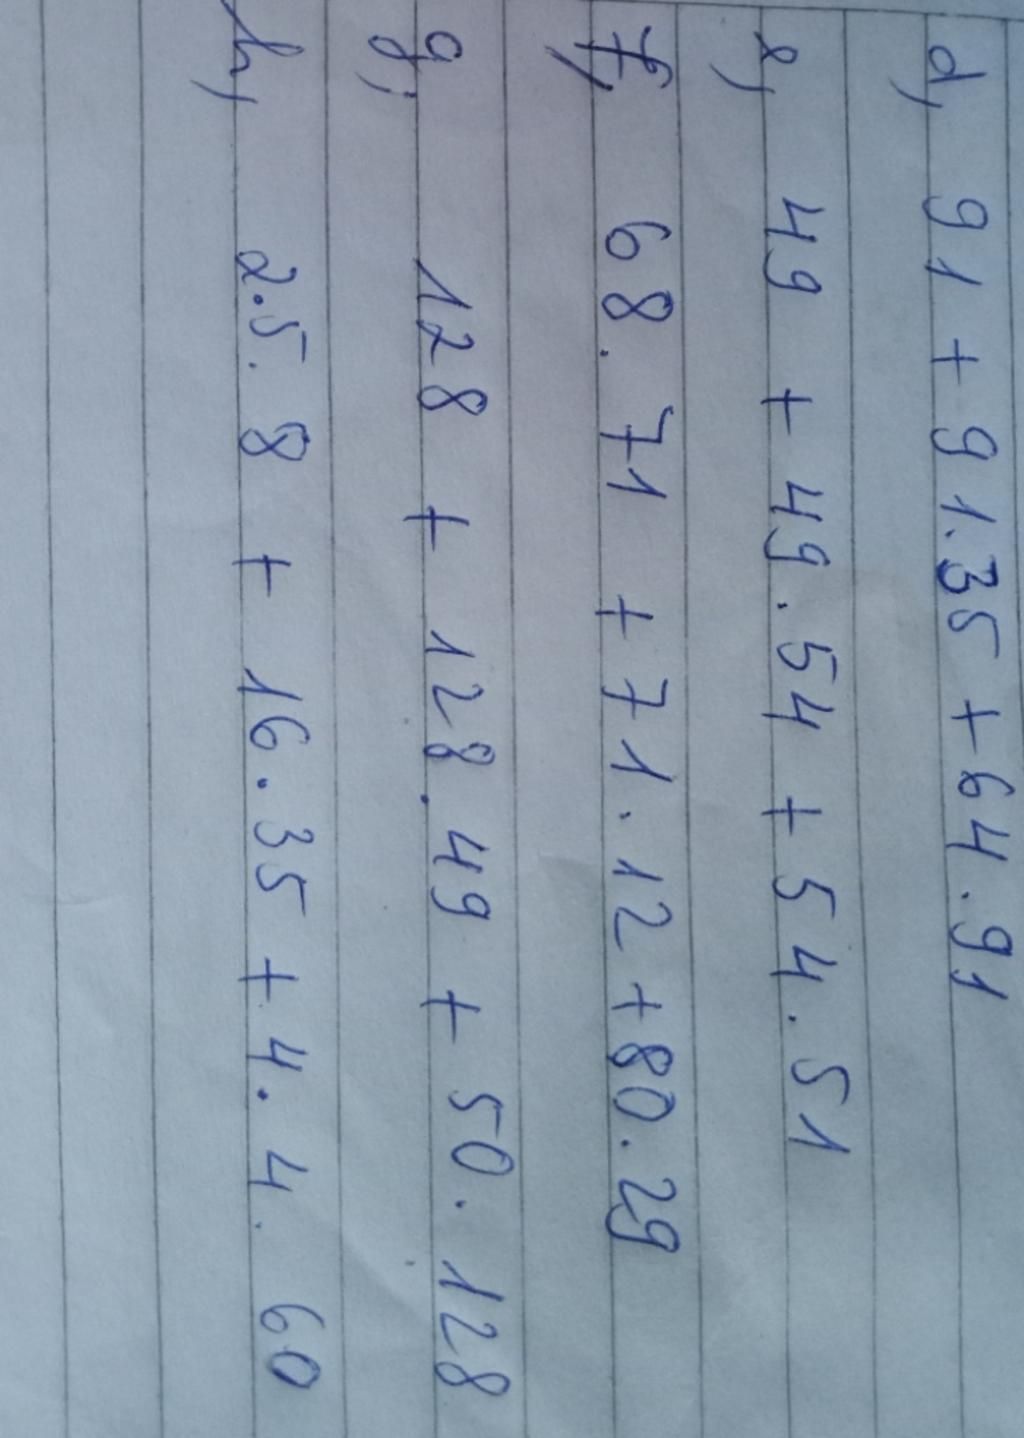 d, 91 + 91.35 + 64.91
e, 49 + 49.54 + 54.51
f, 68.71 + 71.12 + 80.29
g, 128 + 128.49 + 50.128
h, 2.5.8 + 16.35 + 4.4.60